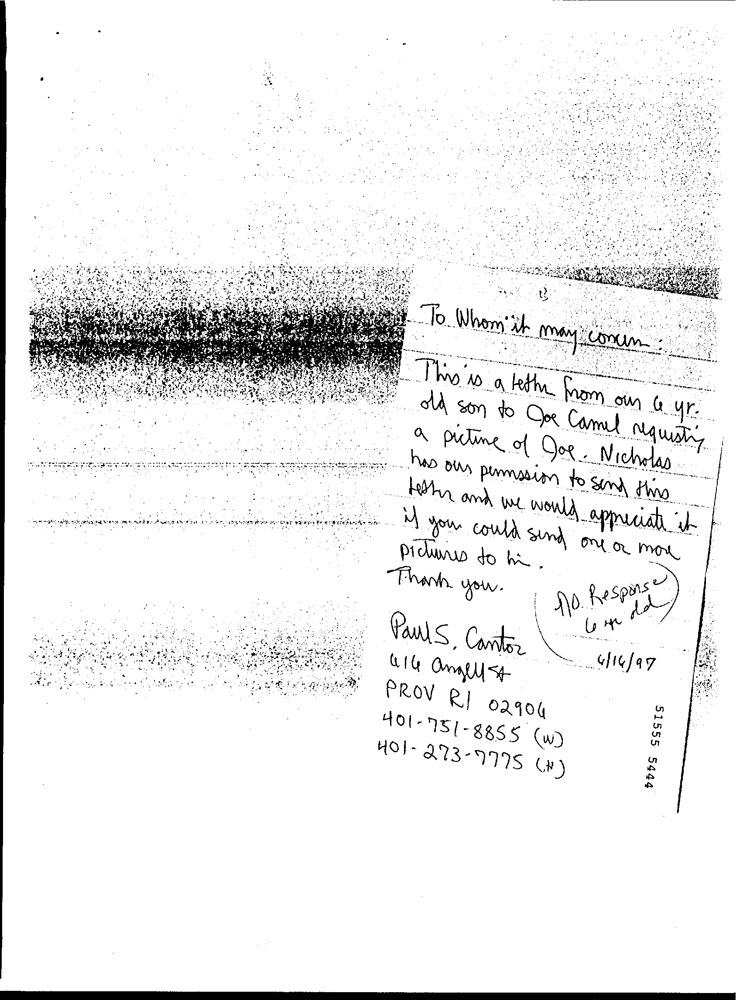 To Whom it may concern:
This is a letter from our 6 yr.
old son to Joe Camel requesting
a picture of Joe. Nicholas
has our permission to send this
letter and we would appreciate it
if you could send one or more
pictures to him.
Thank you.
No Response
6 yr old
Paul S. Cantor
616 Angell St
4/16/97
PROV RI 02906
401-751-8855 (W)
401-273-7775 (H)
51555 5444